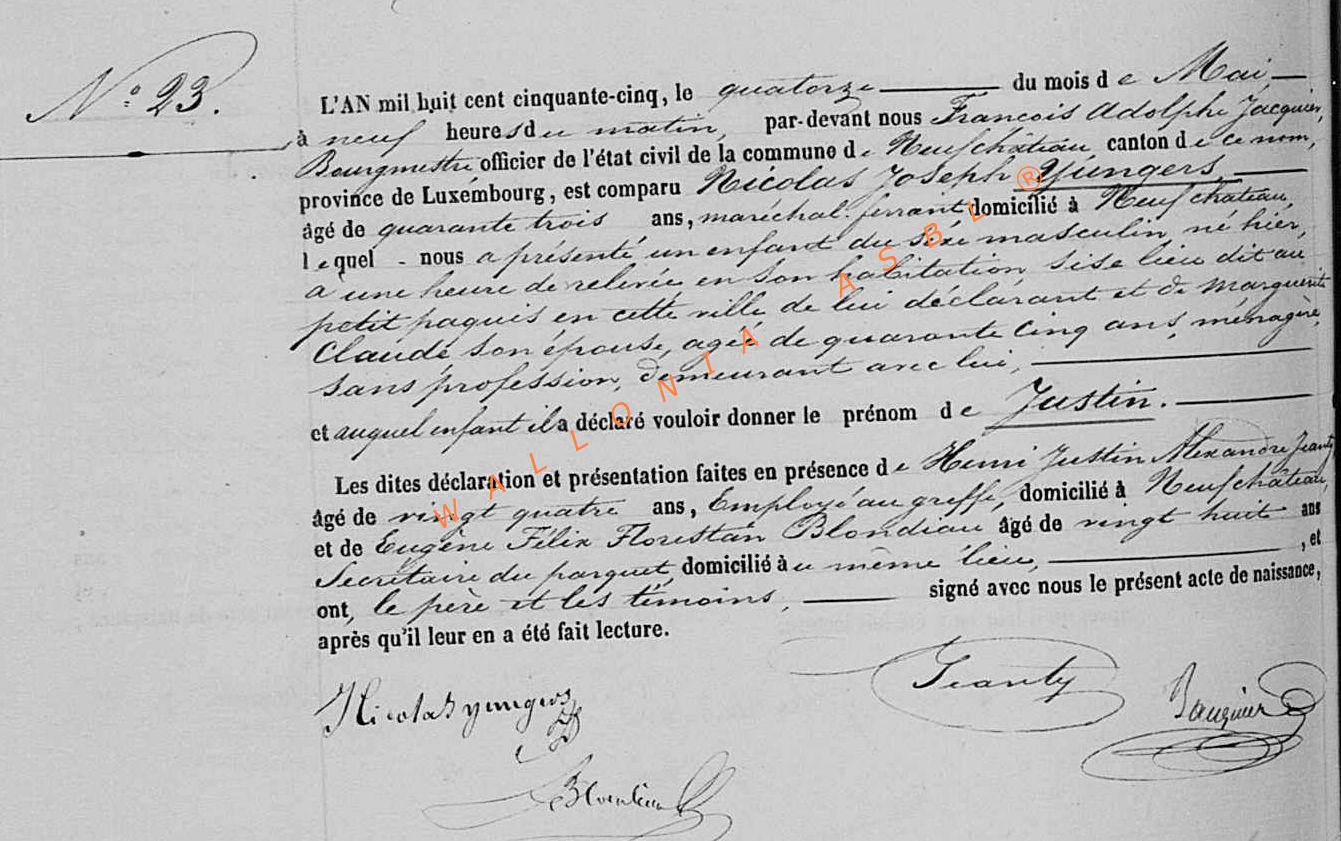 N° 23.
L'AN mil huit cent cinquante-cinq, le quatorze du mois de Mai
à neuf heures du matin, par-devant nous François Adolphe Jacquier,
Bourgmestre officier de l'état civil de la commune de Neufchâteau canton de ce nom,
province de Luxembourg, est comparu Nicolas Joseph Yüngers,
âgé de quarante trois ans, maréchal ferrant domicilié à Neufchateau,
lequel nous a présenté un enfant du sexe masculin, né hier,
à une heure de relevée en son habitation sise lieu dit au
petit paquis en cette ville de lui déclarant et de Marguerite
Claude son épouse, agée de quarante cinq ans, menagère,
sans profession, demeurant avec lui,
et auquel enfant il a déclaré vouloir donner le prénom de Justin.
Les dites déclaration et présentation faites en présence de Henri Justin Alexandre Jeanty
âgé de vingt quatre ans, Employé au greffe, domicilié à Neufchâteau,
et de Eugène Félix Florestan Blondiau âgé de vingt huit ans
Secrétaire du parquet, domicilié au même lieu, , et
ont, le père et les témoins, signé avec nous le présent acte de naissance,
après qu'il leur en a été fait lecture.
Nicolas yungers
Jeanty
Jacquier
Blondiau
WALLONIA ASBL ®